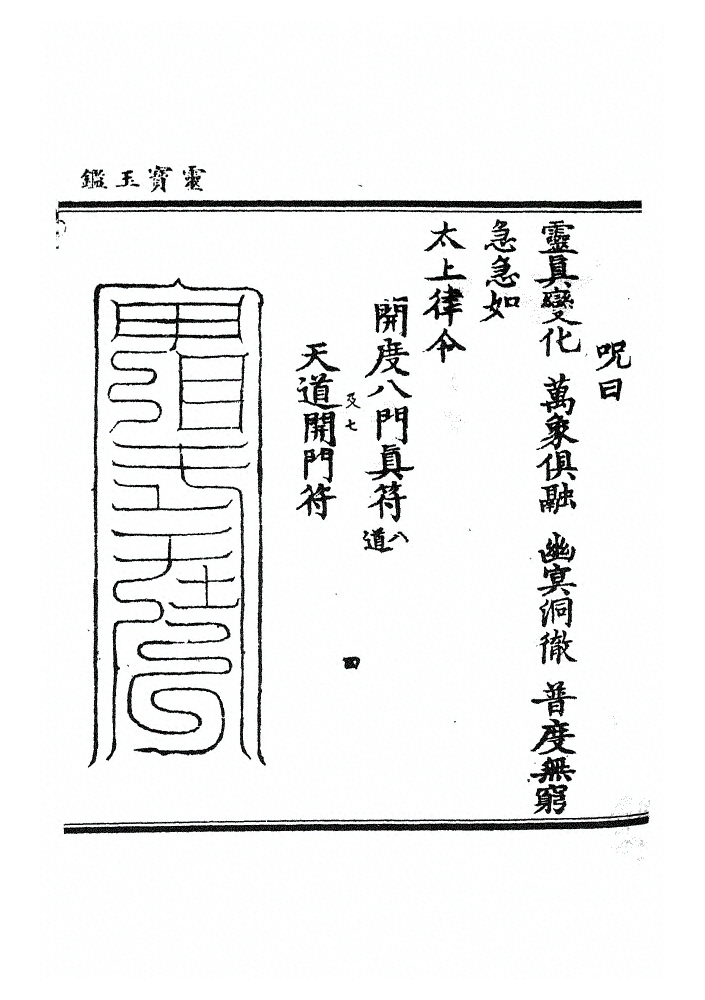 靈寶玉鑑
呪曰
靈真變化 萬象俱融 幽冥洞徹 普度無窮
急急如
太上律令
開度八門真符 八道
及七
四
天道開門符